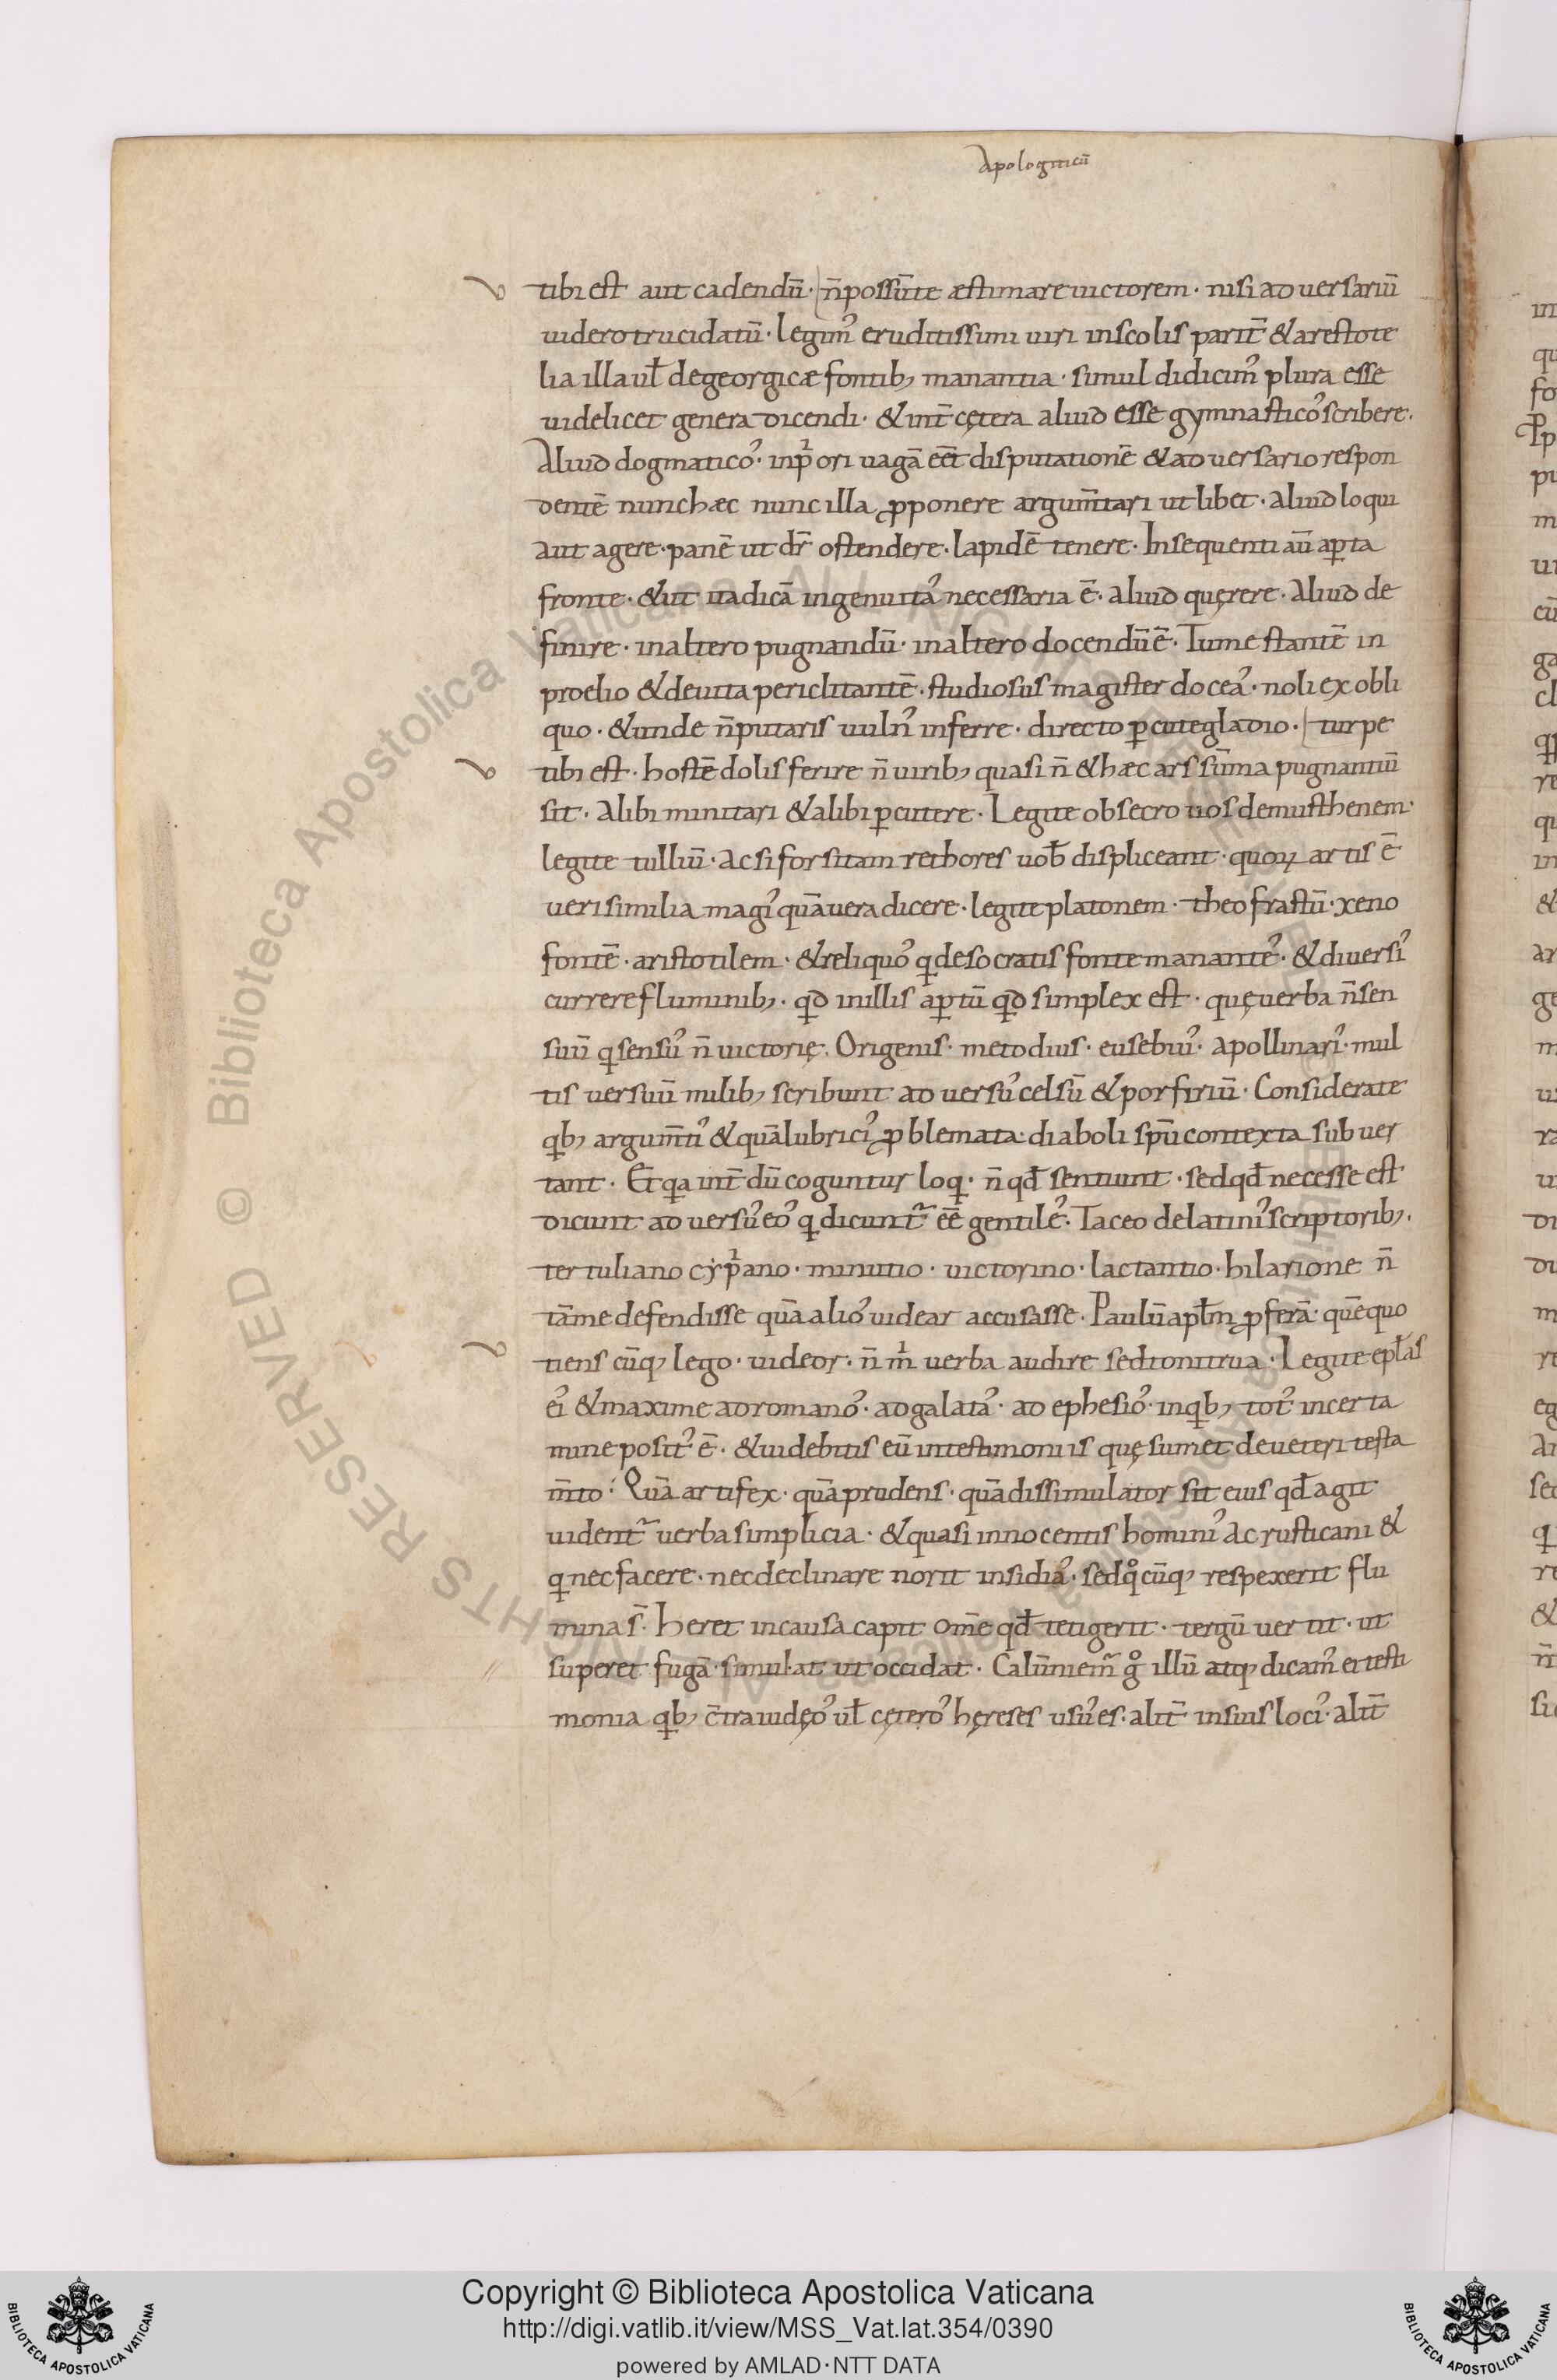 Apologiticū
tibi est aut cadendū· n̄possūte æstimare uictorem· nisi aduersariū
uiderotrucidatū· legim᾽ eruditissimi uiri inscolis parit̄ & arestote
lia illa ul̄ degeorgicæ fontib; manantia· simul didicim᾽ plura esse
uidelicet genera dicendi· & int̄ cętera aliud esse gymnastico᾽ scribere·
Aliud dogmatico᾽· inp̄ori uagā eēt disputationē & aduersario respon
dentē nunc hæc nunc illa ꝓponere argum̄tari ut libet· aliud loqui
aut agere· panē ut dr̄ ostendere· lapidē tenere· Insequenti aū aꝑta
fronte· & ut itadicā ingenuita᾽ necessaria ē· aliud quęrere· Aliud de
finire· inaltero pugnandū· inaltero docendū ē· Tumestantē in
proelio & deuita periclitantē· studiosus magister docea᾽· noli ex obli
quo· & unde n̄putaris uuln᾽ inferre· directo ꝑcutegladio· turpe
tibi est· hostē dolis ferire n̄ uirib; quasi n̄ & hæc ars sūma pugnantiū
sit· Alibi minitari & alibi ꝑcutere· Legite obsecro uos demusthenem·
legite tulliū· Ac si forsitam rethores uob̄ displiceant· quoꝝ artis ē
uerisimilia magi᾽ quāuera dicere· legite platonem· theofrastū· xeno
fontē· aristotilem· & reliquo᾽ ꝗ desocratis fonte manante᾽· & diuersi᾽
currere fluminib;· ꝗd inillis aꝑtū ꝗd simplex est· quę uerba n̄ sen
suū ꝗ sensu᾽ n̄ uictorię· Origenis· metodius· eusebiu᾽· apollinari᾽· mul
tis uersuū milib; scribunt aduersu᾽ celsū & porfiriū· Considerate
ꝗb; argum̄ti᾽ & quālubrici᾽ ꝓblemata diaboli spū contexta subuer
tant· Et ꝗa int̄dū coguntur loꝗ· n̄ qđ sentiunt· sed qđ necesse est
dicunt aduersu᾽ eo᾽ ꝗ dicunt᷑ eē gentile᾽· Taceo delatini᾽ scriptorib;·
tertuliano cyp̄ano· minutio· uictorino· lactantio· hilarione n̄
tāme defendisse quā alio᾽ uidear accusasse· Paulū apl̄m ꝓferā· quē quo
tiens cūq; lego· uideor· n̄ m̄ uerba audire sed tonitrua· Legite epl̄as
ei᾽ & maxime ad romano᾽· ad galata᾽· ad ephesio᾽· inꝗb; tot᾽ incerta
mine posit᾽ ē· & uidebitis eū intestimoniis quę sumet deueteri testa
m̄to· Quā artifex· quā prudens· quā dissimulator sit eius qđ agit
uident᷑ uerba simplicia· & quasi innocentis homini᾽ ac rusticani &
ꝗ nec facere· nec declinare norit insidia᾽· sed qͦcūq; respexerit flu
mina s̄· heret incausa capit om̄e qđ tetigerit· tergū uertit· ut
superet fugā· simulat ut occidat· Calūniem᷑ gͦ illū atq; dicam᾽ ei testi
monia ꝗb; c̄tra iudęo᾽ ul̄ cętero᾽ hęreses usu᾽ es· alit̄ insuis loci᾽· alit̄
Copyright © Biblioteca Apostolica Vaticana
http://digi.vatlib.it/view/MSS_Vat.lat.354/0390
powered by AMLAD·NTT DATA